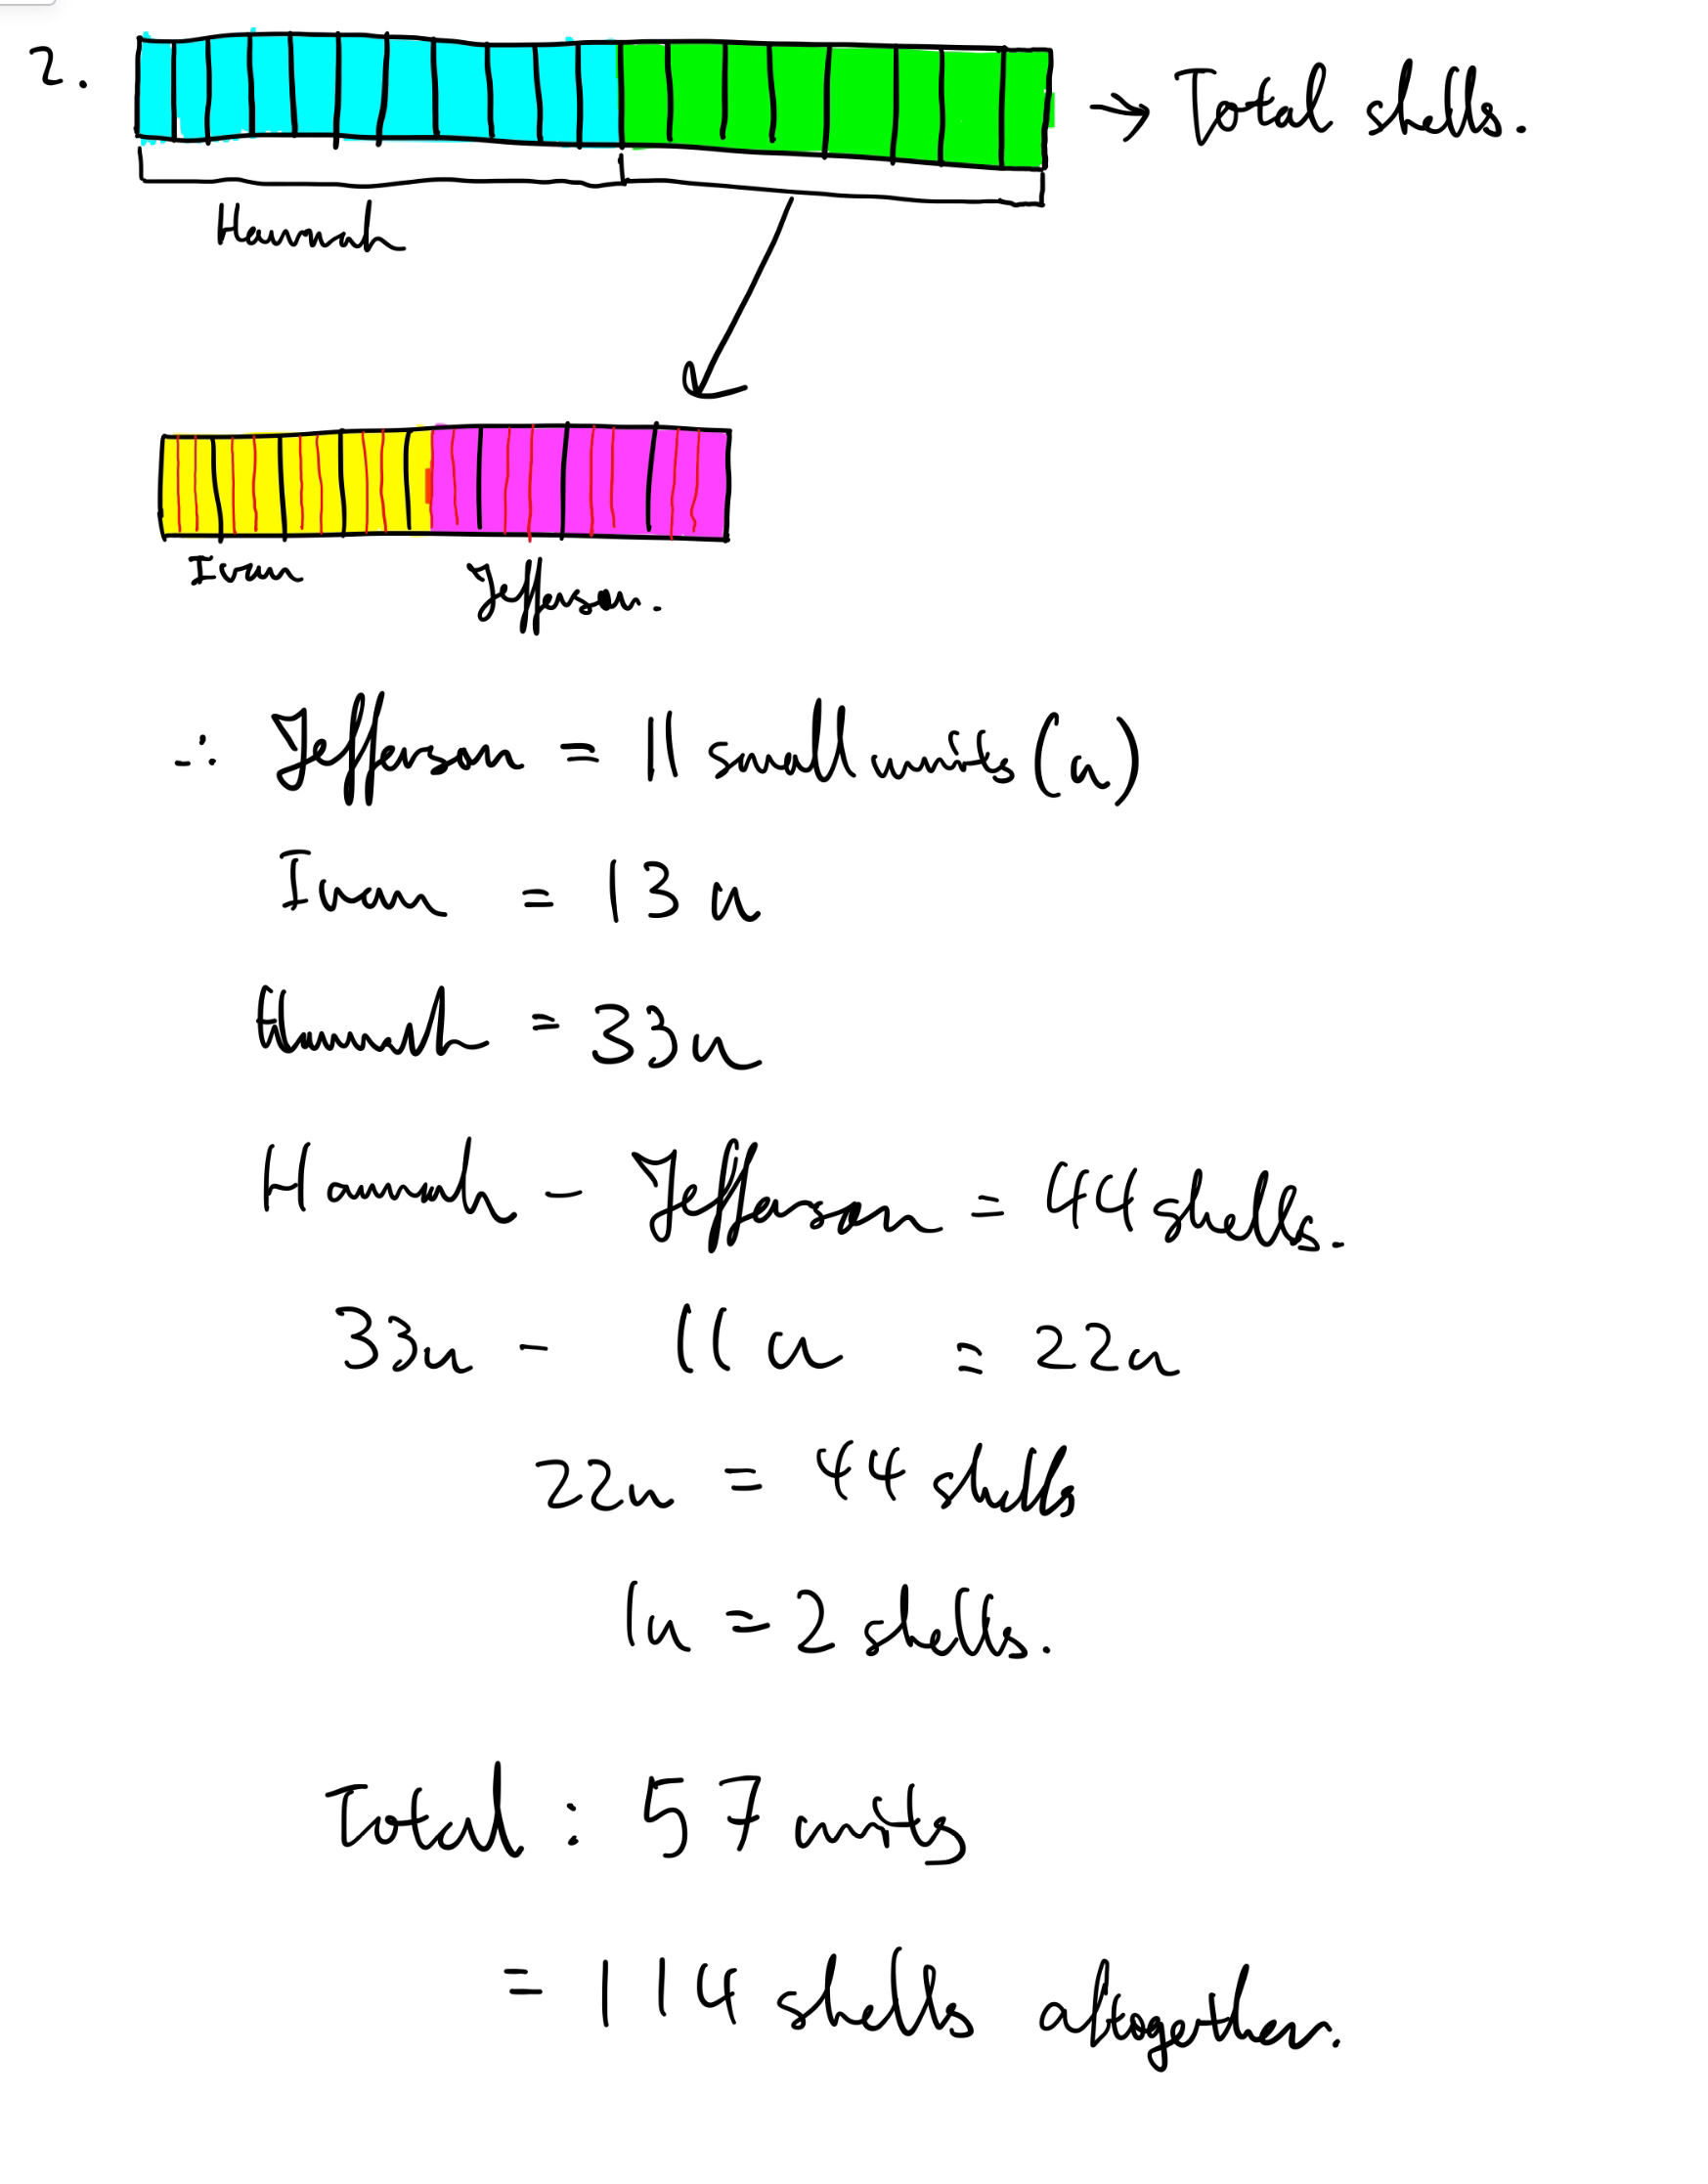 2.
→ Total shells.
Hannah
Ivan
Jefferson.
∴ Jefferson = 11 small units (u)
Ivan = 13 u
Hannah = 33u
Hannah - Jefferson = 44 shells.
33u - 11u = 22u
22u = 44 shells
1u = 2 shells.
Total : 57 units
= 114 shells altogether.